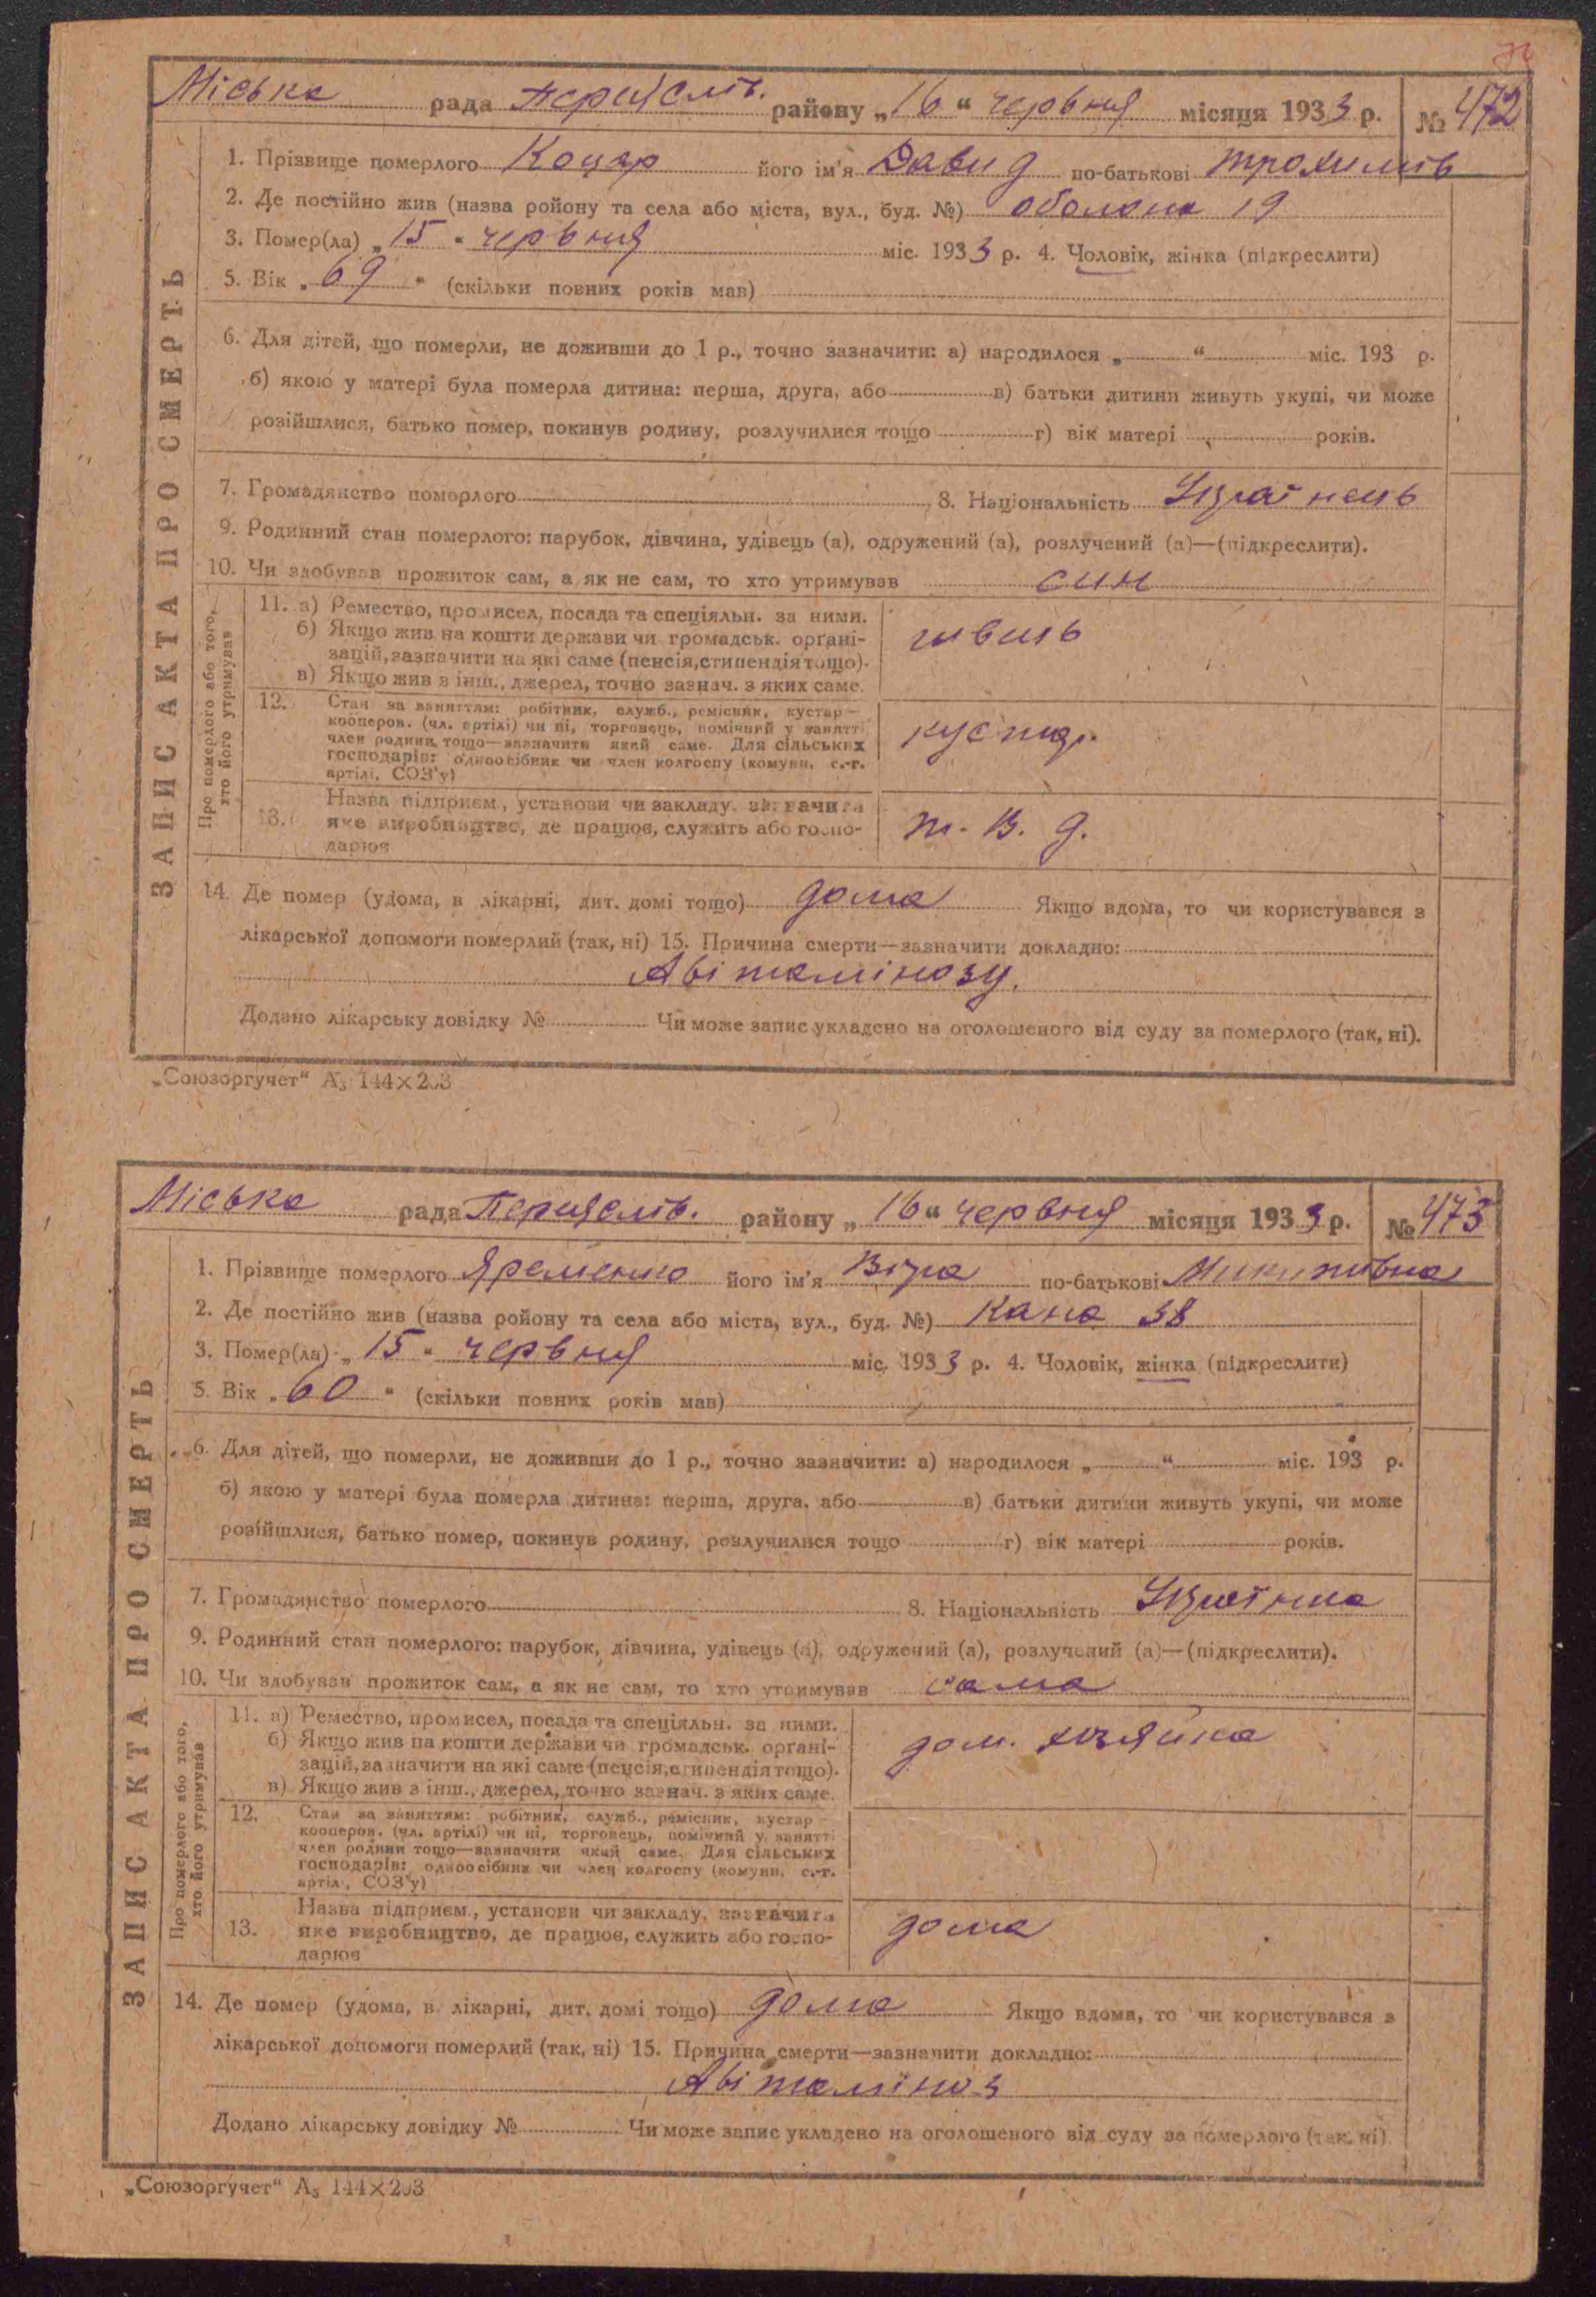 Міська рада Переяслів. району „16“ червня місяця 1933 р. № 472
1. Прізвище померлого Коцар його ім'я Давид по-батькові Трохимів
2. Де постійно жив (назва ройону та села або міста, вул., буд. №) оболона 19
3. Помер(ла) „15“ червня міс. 1933 р. 4. Чоловік, жінка (підкреслити)
5. Вік „69“ (скільки повних років мав)
6. Для дітей, що померли, не доживши до 1 р., точно зазначити: а) народилося „ “ міс. 193 р.
б) якою у матері була померла дитина: перша, друга, або в) батьки дитини живуть укупі, чи може
розійшлися, батько помер, покинув родину, розлучилися тощо г) вік матері років.
7. Громадянство померлого 8. Національність Українець
9. Родинний стан померлого: парубок, дівчина, удівець (а), одружений (а), розлучений (а)—(підкреслити).
10. Чи здобував прожиток сам, а як не сам, то хто утримував син
ЗАПИС АКТА ПРО СМЕРТЬ
Про померлого або того, хто його утримував
11. а) Ремество, промисел, посада та спеціяльн. за ними.
б) Якщо жив на кошти держави чи громадськ. органі-
зацій, зазначити на які саме (пенсія, стипендія тощо).
в) Якщо жив з інш., джерел, точно зазнач. з яких саме.
швець
12. Стан за заняттям: робітник, служб., ремісник, кустар—
кооперов. (чл. артілі) чи ні, торговець, помічний у занятті
член родини тощо—зазначити який саме. Для сільських
господарів: одноосібник чи член колгоспу (комуни, с.-г.
артілі, СОЗ'у)
кустар.
13. Назва підприєм., установи чи закладу, зазначити
яке виробництво, де працює, служить або госпо-
дарює
т. В. д.
14. Де помер (удома, в лікарні, дит. домі тощо) дома Якщо вдома, то чи користувався з
лікарської допомоги померлий (так, ні) 15. Причина смерти—зазначити докладно:
Авітамінозу.
Додано лікарську довідку № Чи може запис укладено на оголошеного від суду за померлого (так, ні).
„Союзоргучет“ А₅ 144×203
Міська рада Переяслів. району „16“ червня місяця 1933 р. № 473
1. Прізвище померлого Яременко його ім'я Віра по-батькові Микитівна
2. Де постійно жив (назва ройону та села або міста, вул., буд. №) Кана 38
3. Помер(ла) „15“ червня міс. 1933 р. 4. Чоловік, жінка (підкреслити)
5. Вік „60“ (скільки повних років мав)
6. Для дітей, що померли, не доживши до 1 р., точно зазначити: а) народилося „ “ міс. 193 р.
б) якою у матері була померла дитина: перша, друга, або в) батьки дитини живуть укупі, чи може
розійшлися, батько помер, покинув родину, розлучилися тощо г) вік матері років.
7. Громадянство померлого 8. Національність Українка
9. Родинний стан померлого: парубок, дівчина, удівець (а), одружений (а), розлучений (а)—(підкреслити).
10. Чи здобував прожиток сам, а як не сам, то хто утримував сама
ЗАПИС АКТА ПРО СМЕРТЬ
Про померлого або того, хто його утримував
11. а) Ремество, промисел, посада та спеціяльн. за ними.
б) Якщо жив на кошти держави чи громадськ. органі-
зацій, зазначити на які саме (пенсія, стипендія тощо).
в) Якщо жив з інш., джерел, точно зазнач. з яких саме.
дом. хозяйка
12. Стан за заняттям: робітник, служб., ремісник, кустар—
кооперов. (чл. артілі) чи ні, торговець, помічний у занятті
член родини тощо—зазначити який саме. Для сільських
господарів: одноосібник чи член колгоспу (комуни, с.-г.
артілі, СОЗ'у)
13. Назва підприєм., установи чи закладу, зазначити
яке виробництво, де працює, служить або госпо-
дарює
дома
14. Де помер (удома, в лікарні, дит. домі тощо) дома Якщо вдома, то чи користувався з
лікарської допомоги померлий (так, ні) 15. Причина смерти—зазначити докладно:
Авітаміноз
Додано лікарську довідку № Чи може запис укладено на оголошеного від суду за померлого (так, ні).
„Союзоргучет“ А₅ 144×203